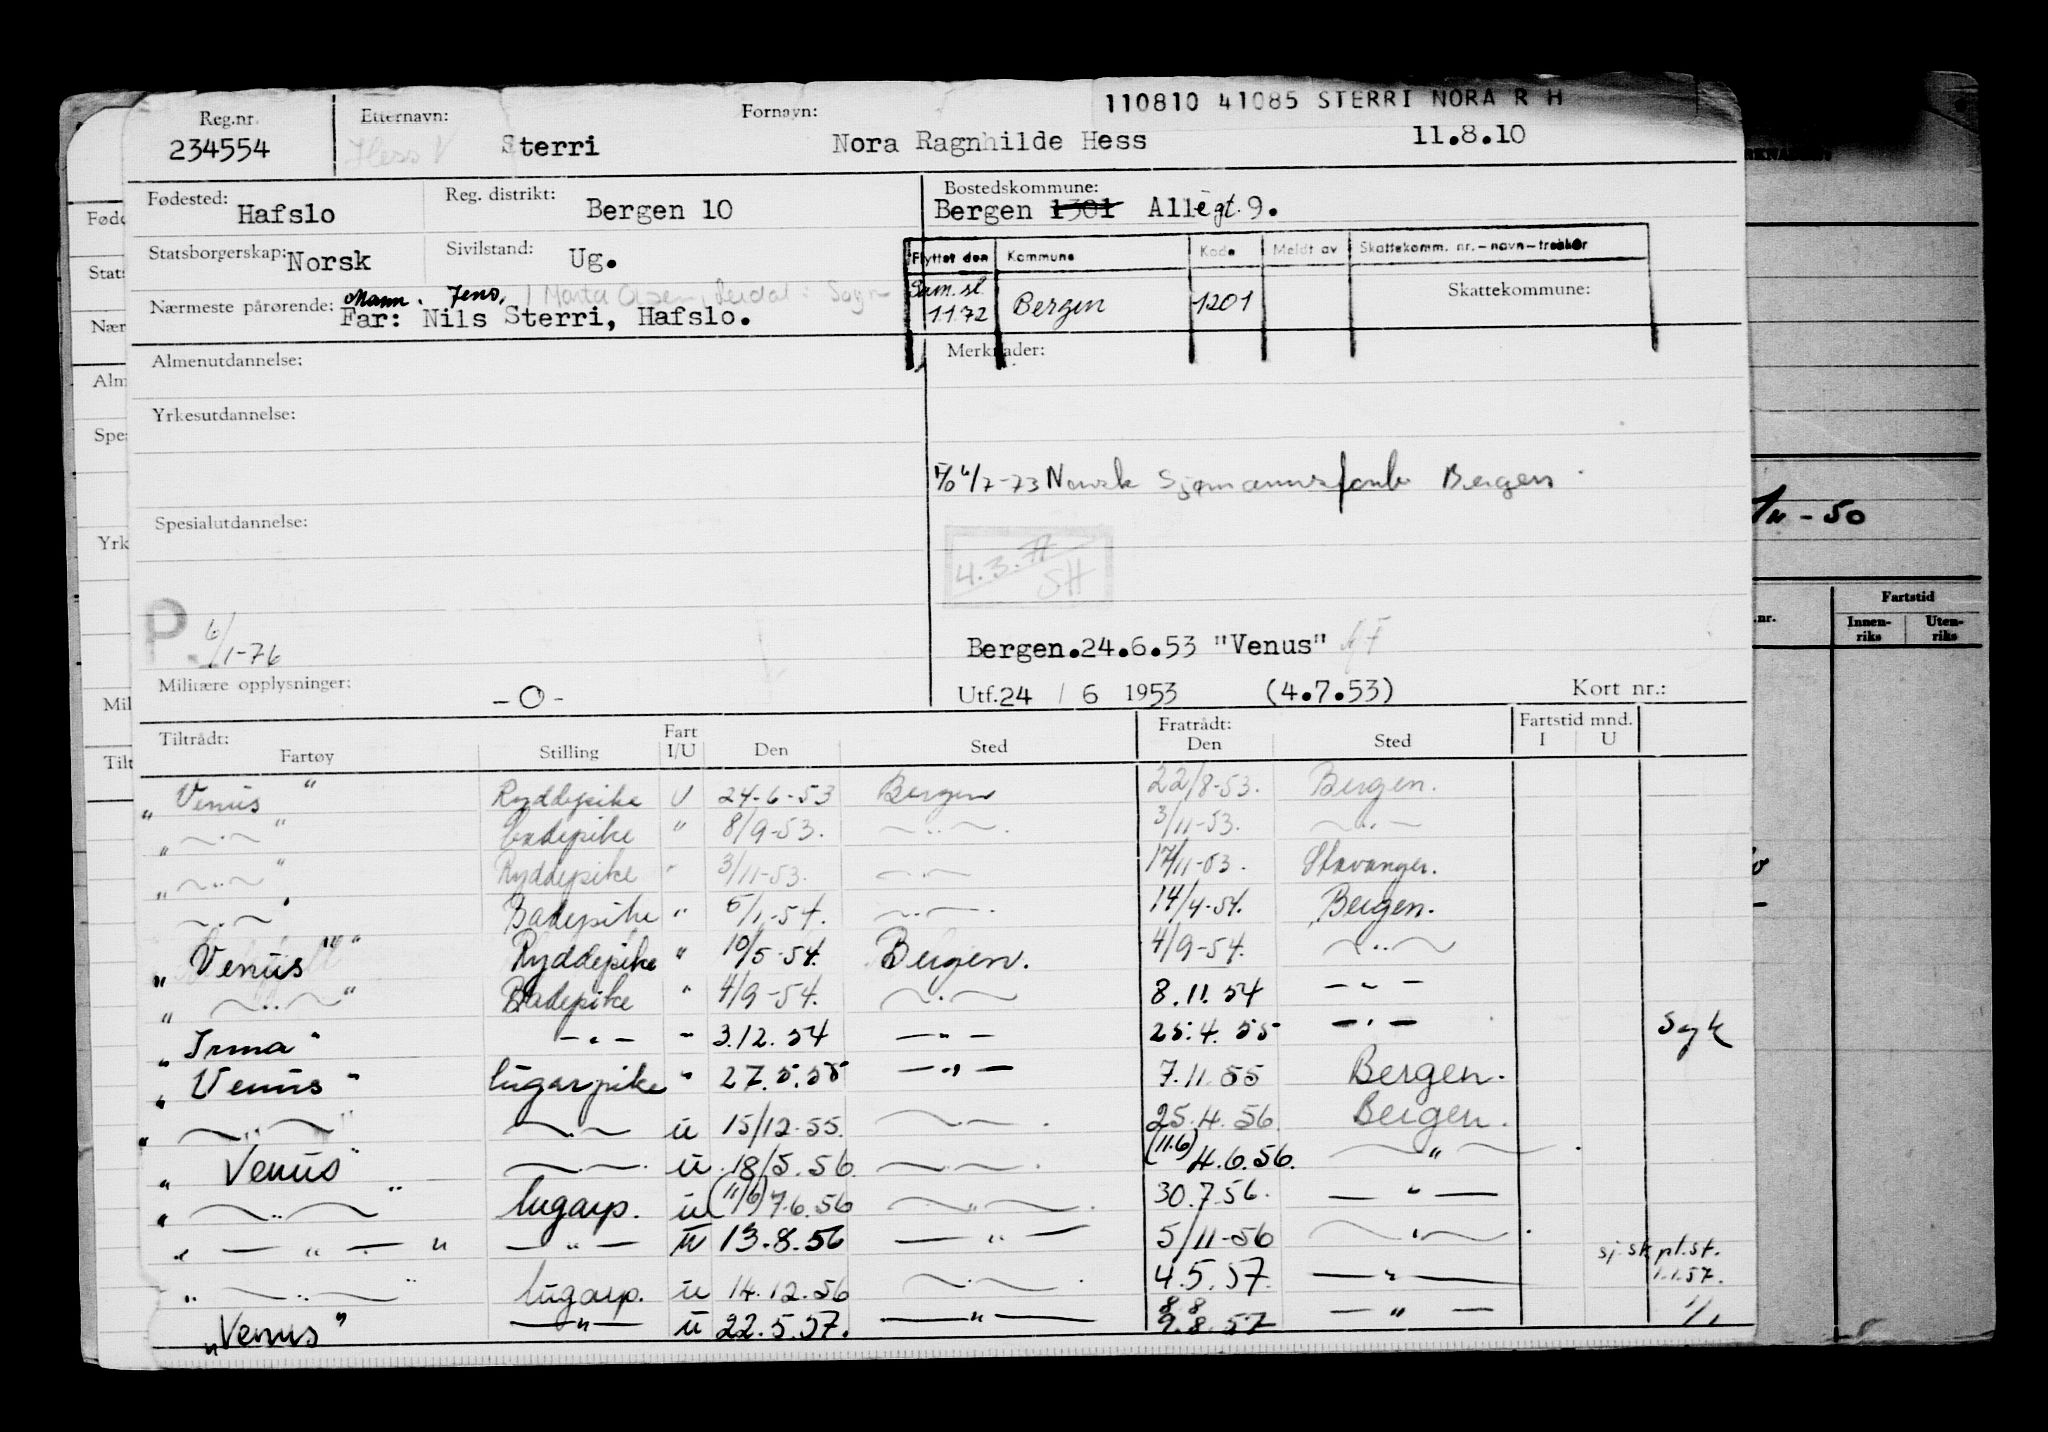 110810 41085 STERRI NORA R H
Reg.nr. Etternavn: Fornavn:
234554 Hess Sterri Nora Ragnhilde Hess 11.8.10
Fødested: Hafslo Reg. distrikt: Bergen 10 Bostedskommune: Bergen 1301 Allégt. 9.
Statsborgerskap: Norsk Sivilstand: Ug.
Flyttet den Kommune Kode Meldt av Skattekomm. nr.-navn-trekkår
Sam.sl. 1.1.72 Bergen 1201 Skattekommune:
Nærmeste pårørende: Mann. Jens, Marta Olsen,
Far: Nils Sterri, Hafslo.
Almenutdannelse: Merknader:
Yrkesutdannelse:
6/7-73 Norsk Sjømannsforb Bergen
Spesialutdannelse:
4.3.77
SH
P 6/1-76
Bergen.24.6.53 "Venus"
Militære opplysninger: -O- Utf.24 / 6 1953 (4.7.53) Kort nr.:
Tiltrådt: Fratrådt: Fartstid mnd.
Fartøy Stilling Fart I/U Den Sted Den Sted I U
"Venus" Ryddepike U 24-6-53 Bergen 22/8-53. Bergen.
" ~.~ " Badepike " 8/9-53. ~..~. 3/11-53. ~..~
" ~..~ " Ryddepike " 3/11-53. ~.~ 17/11-53. Stavanger.
~..~ " Badepike " 5/1-54. ~..~. 14/4-54. Bergen.
"Venus" Ryddepike " 10/5-54. Bergen. 4/9-54. ~..~
" ~..~ " Badepike " 4/9-54. ~.~ 8.11.54 - " -
"Irma" - " - " 3.12.54 - " - 25.4.55 - " - Syk
"Venus" lugarpike " 27.5.55 - " - 7.11.55 Bergen.
" ~..~ " ~.~ u 15/12-55. ~.~. 25.4.56. Bergen.
"Venus" ~.~. u. 18/5.56 ~.~. (11.6) 4.6.56. ~ " ~.
" ~..~ " lugarp. u (11/6) 7.6.56 ~..~. 30.7.56. - " -
" - " - " - " - u 13.8.56 - " - 5/11-56 ~.~.
" ~..~ " lugarp. u 14.12.56 ~.~. 4.5.57. - " - sj.sk.pl.st. 1.1.57.
"Venus" - " - u 22.5.57. - " - 8 8 9.8.57 - " - 1/1
Føde
Stats
Nær
Alm
Spe
Yrk
Mil
Tilt
- 50
Fartstid
.nr. Innen-riks Uten-riks